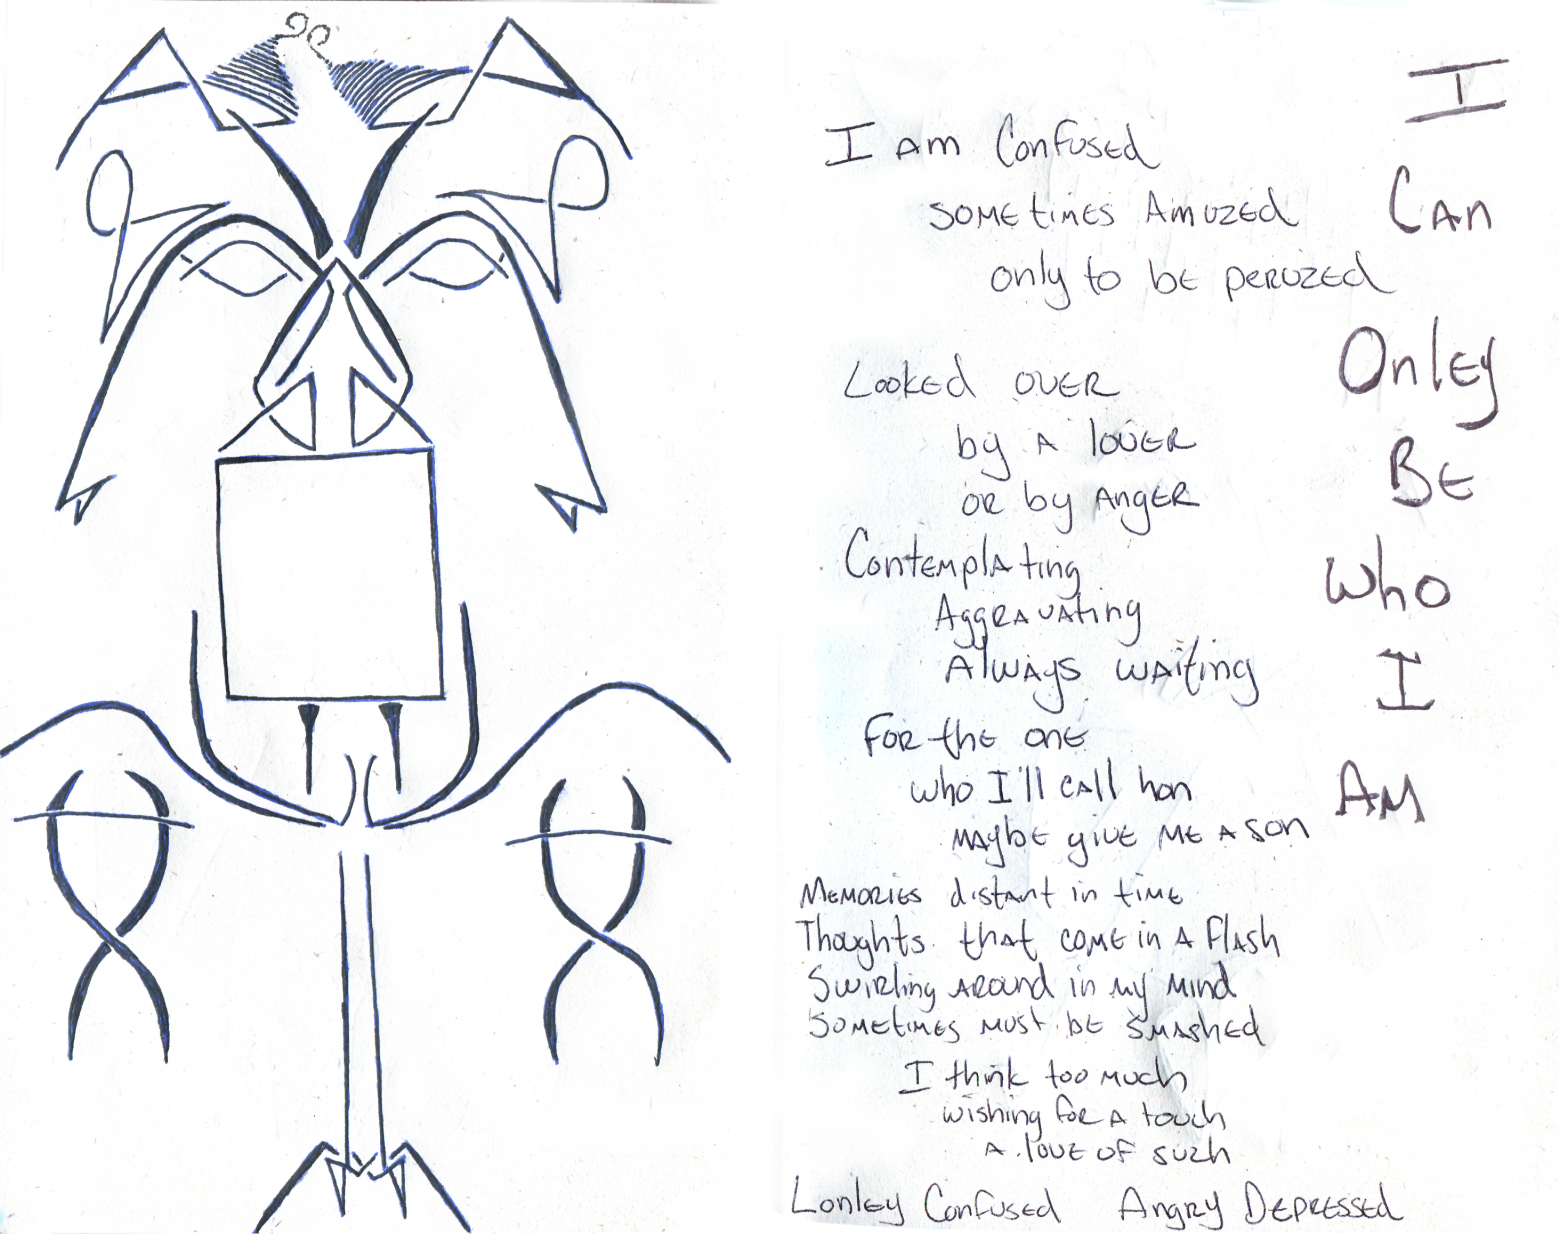 I Am Confused
sometimes Amuzed
only to be peruzed
Looked over
by a lover
or by Anger
Contemplating
Aggravating
Always waiting
For the one
who I'll call hon
maybe give me a son
Memories distant in time
Thoughts that come in a flash
Swirling around in my mind
Sometimes must be smashed
I think too much
wishing for a touch
a love of such
Lonley Confused Angry Depressed
I
Can
Onley
Be
Who
I
Am